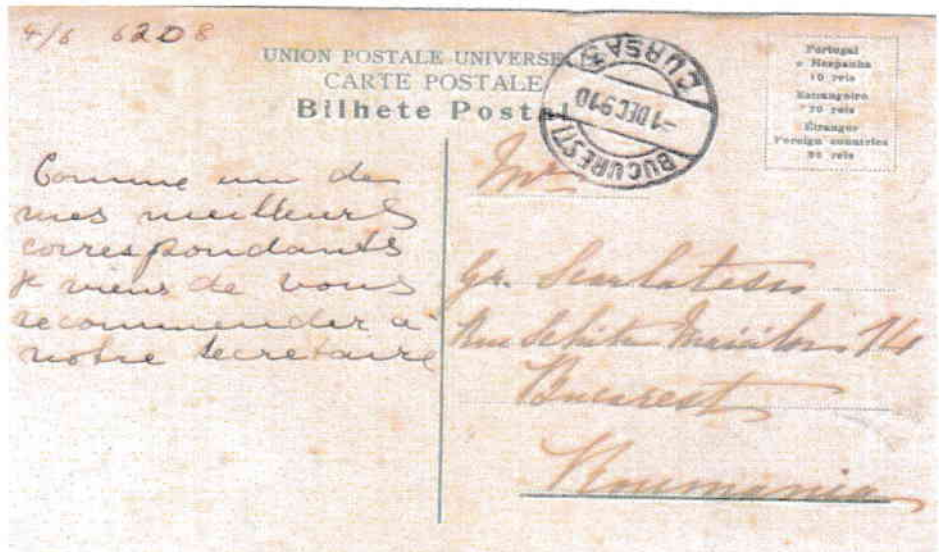 4/6 6208
UNION POSTALE UNIVERSELLE
CARTE POSTALE
Bilhete Postal
CURSA 3
-1 DEC 910
BUCURESTI
Portugal
e Hespanha
10 reis
Estrangeiro
20 reis
Étranger
Foreign countries
20 reis
Comme un de
mes meilleurs
correspondants
je viens de vous
recommender a
notre secretaire
Mr
Gr. Scarlatescu
Rue 14
Bucarest
Roumania